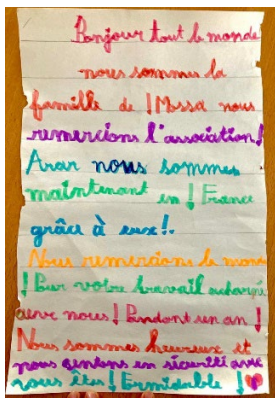 Bonjour tout le monde
nous sommes la
famille de ! Mossa nous
remercions l'association!
Arar nous sommes
maintenant en ! France
grâce à eux!.
Nous remercions le monde
! Pour votre travail acharné
avec nous! Pendont un an !
Nous sommes heureux et
nous sentons en sécurité avec
vous êtes! Formidable !